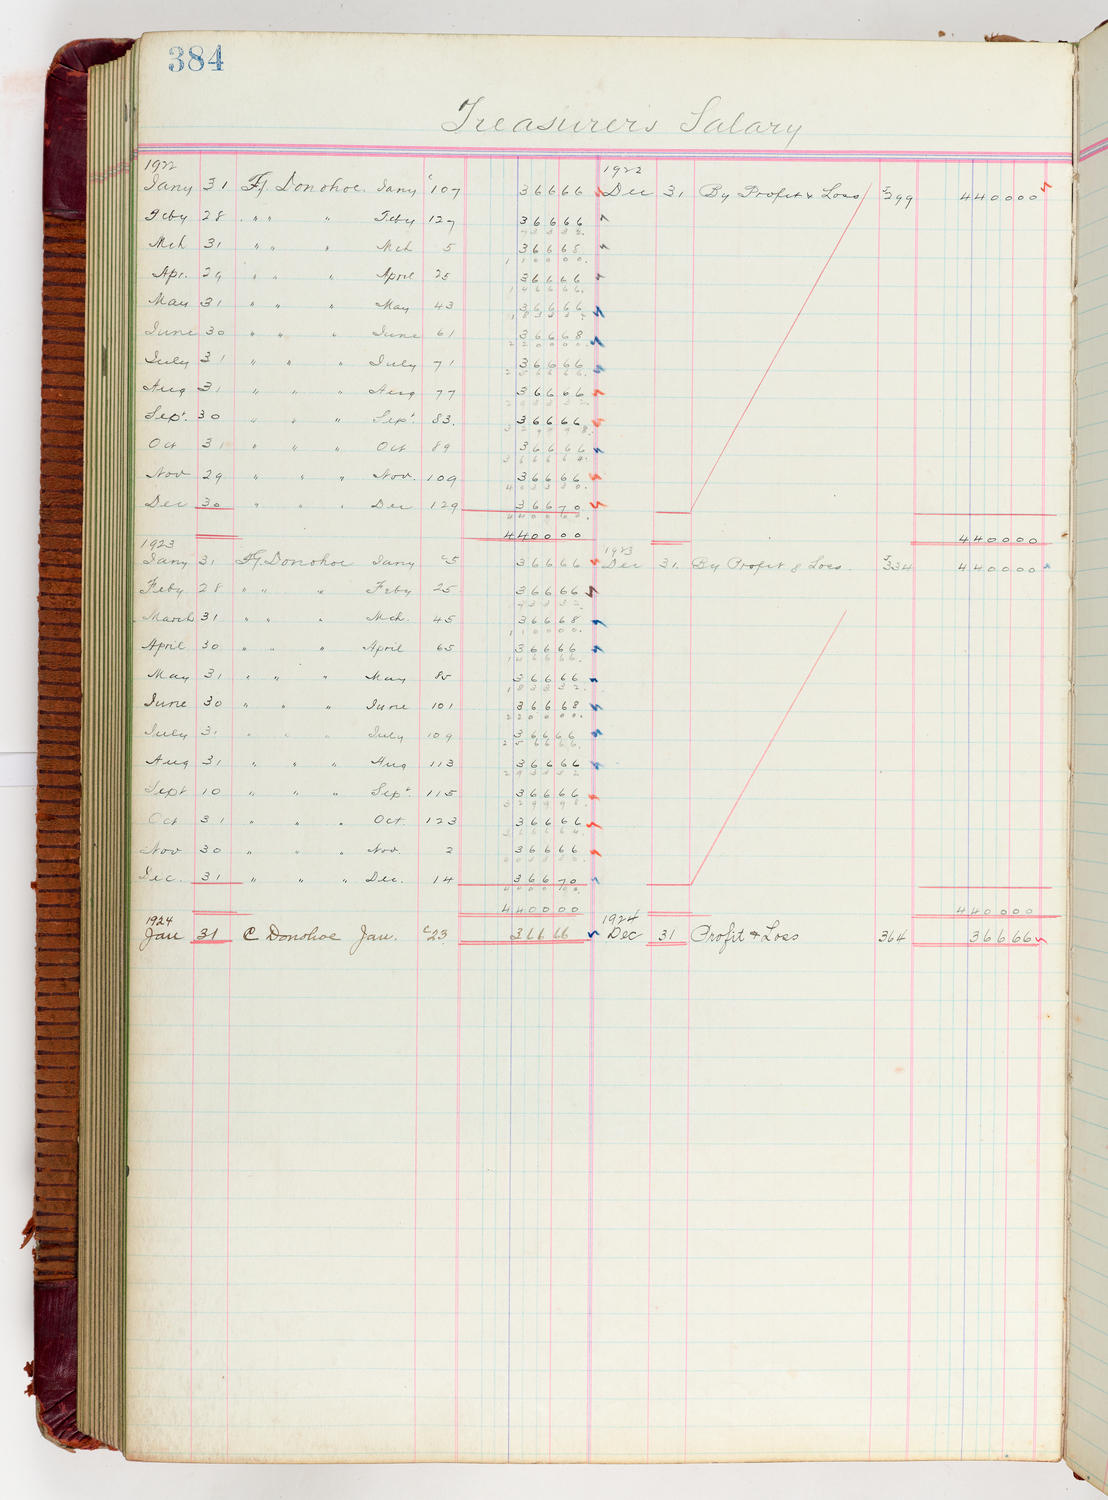 384
Treasurer's Salary
1922 1922
Jany 31 F.J. Donohoe Jany c107 36666 Dec 31 By Profit & Loss J299 440000
Feby 28 " " " Feby 127 36666
73332
Mch 31 " " " Mch 5 36668
110000
Apr. 29 " " " April 25 36666
146666
May 31 " " " May 43 36666
183332
June 30 " " " June 61 36668
220000
July 31 " " " July 71 36666
256666
Aug 31 " " " Aug 77 36666
293332
Sept. 30 " " " Sept 83. 36666
329998
Oct 31 " " " Oct 89 36666
366664
Nov 29 " " " Nov. 109 36666
403330
Dec 30 " " " Dec 129 36670
440000
440000 440000
1923 1923
Jany 31 F.J. Donohoe Jany c5 36666 Dec 31. By Profit & Loss. J334 440000
Feby 28 " " " Feby 25 36666
73332
March 31 " " " Mch. 45 36668
110000
April 30 " " " April 65 36666
146666
May 31 " " " May 85 36666
183332
June 30 " " " June 101 36668
220000
July 31 " " " July 109 36666
256666
Aug 31 " " " Aug 113 36666
293332
Sept 10 " " " Sept 115 36666
329998
Oct 31 " " " Oct. 123 36666
366664
Nov 30 " " " Nov. 2 36666
403330
Dec. 31 " " " Dec. 14 36670
440000
440000 440000
1924 1924
Jan 31 C Donohoe Jan. c23 36666 Dec 31 Profit & Loss 364 36666